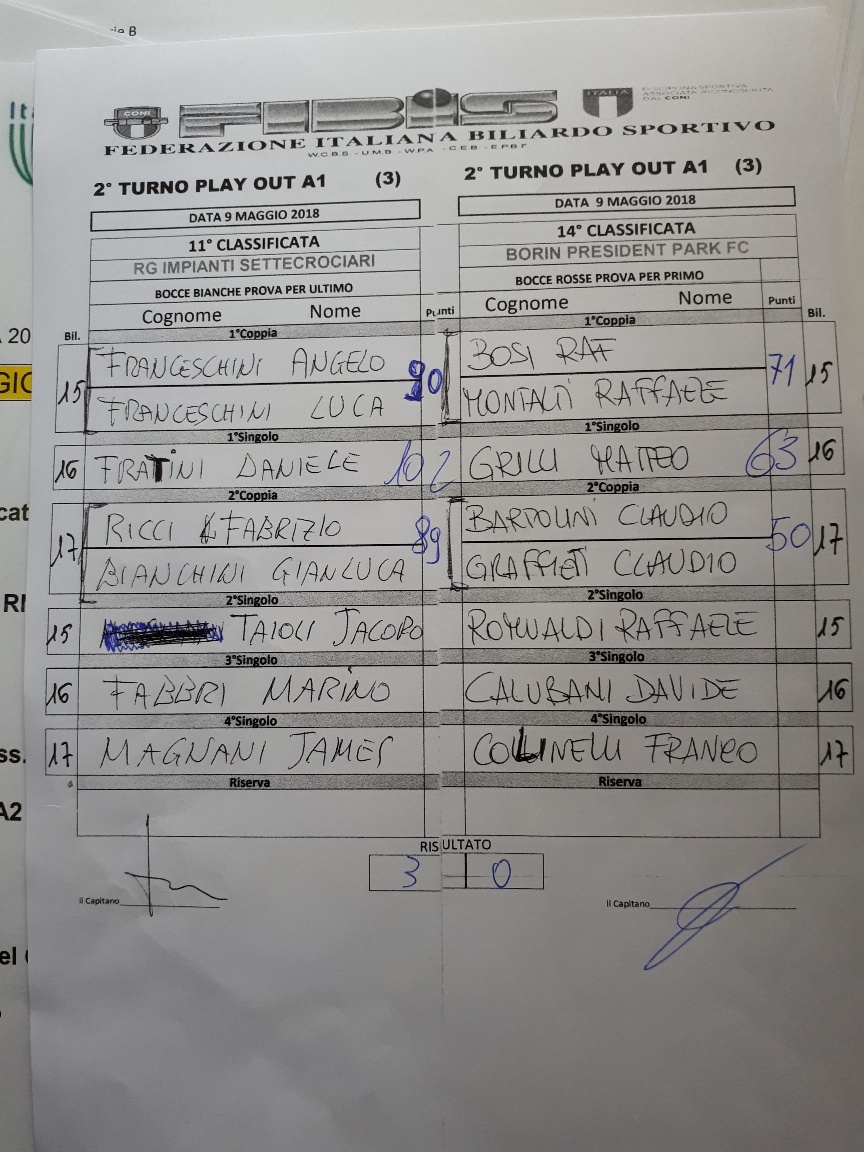 ie B
CONI
FIBIS
ITALIA
DISCIPLINA SPORTIVA
ASSOCIATA RICONOSCIUTA
DAL CONI
FEDERAZIONE ITALIANA BILIARDO SPORTIVO
W.C.B.S - U.M.B - W.P.A - C.E.B - E.P.B.F.
2° TURNO PLAY OUT A1 (3) 2° TURNO PLAY OUT A1 (3)
DATA 9 MAGGIO 2018 DATA 9 MAGGIO 2018
11° CLASSIFICATA 14° CLASSIFICATA
RG IMPIANTI SETTECROCIARI BORIN PRESIDENT PARK FC
BOCCE BIANCHE PROVA PER ULTIMO BOCCE ROSSE PROVA PER PRIMO
Bil. Cognome Nome Punti Cognome Nome Punti Bil.
1°Coppia 1°Coppia
15 FRANCESCHINI ANGELO 90 BOSI RAF 71 15
FRANCESCHINI LUCA MONTALTI RAFFAELE
1°Singolo 1°Singolo
16 FRATINI DANIELE 102 GRILLI MATTEO 63 16
2°Coppia 2°Coppia
17 RICCI FABRIZIO 89 BARTOLINI CLAUDIO 50 17
BIANCHINI GIANLUCA GRAFFIETI CLAUDIO
2°Singolo 2°Singolo
15 TAIOLI JACOPO ROMUALDI RAFFAELE 15
3°Singolo 3°Singolo
16 FABBRI MARINO CALUBANI DAVIDE 16
4°Singolo 4°Singolo
17 MAGNANI JAMES COLLINELLI FRANCO 17
Riserva Riserva
RISULTATO
3 0
Il Capitano Il Capitano